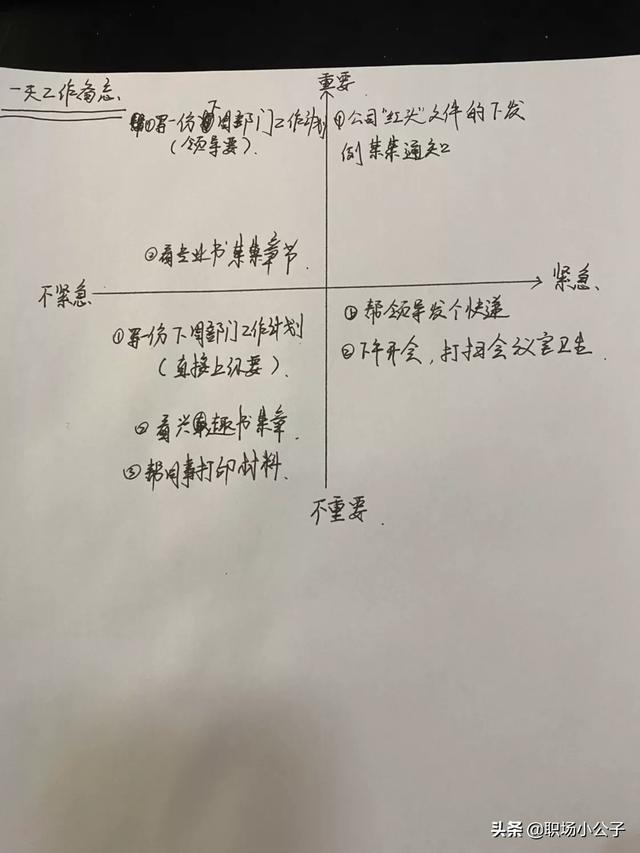 一天工作备忘.
重要
①写一份下周部门工作计划
(领导要).
①公司"红头"文件的下发
例某某通知
②看专业书某某章节.
不紧急
紧急.
①写一份下周部门工作计划
(直接上级要).
①帮领导发个快递
②下午开会,打扫会议室卫生.
②看兴趣书某章.
③帮同事打印材料.
不重要.
头条 @职场小公子